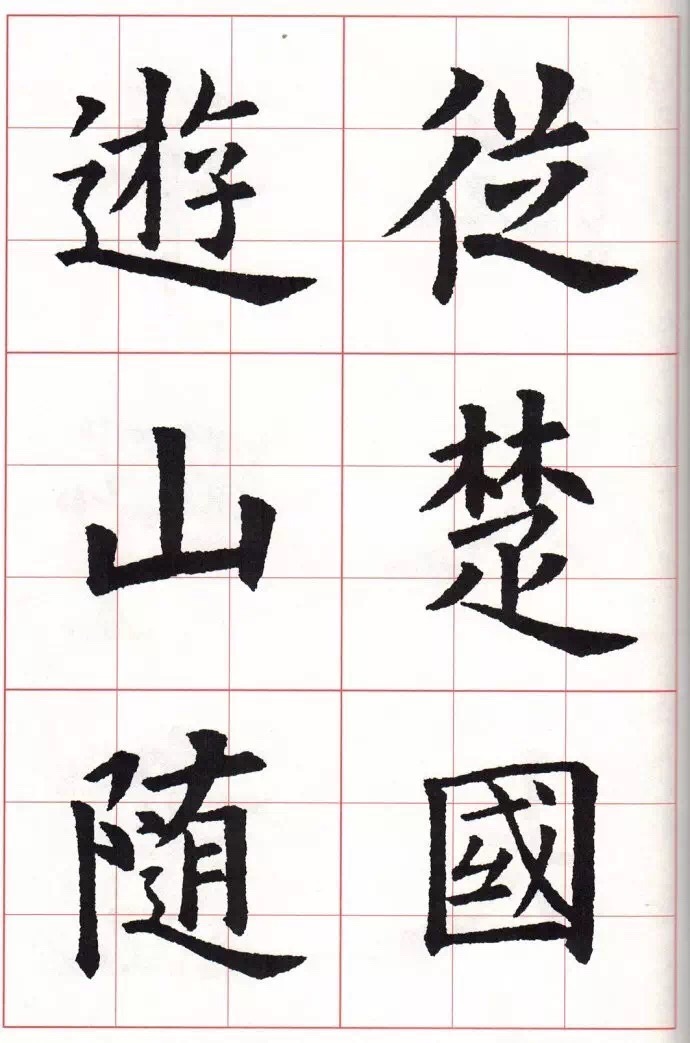 從楚國
遊山随